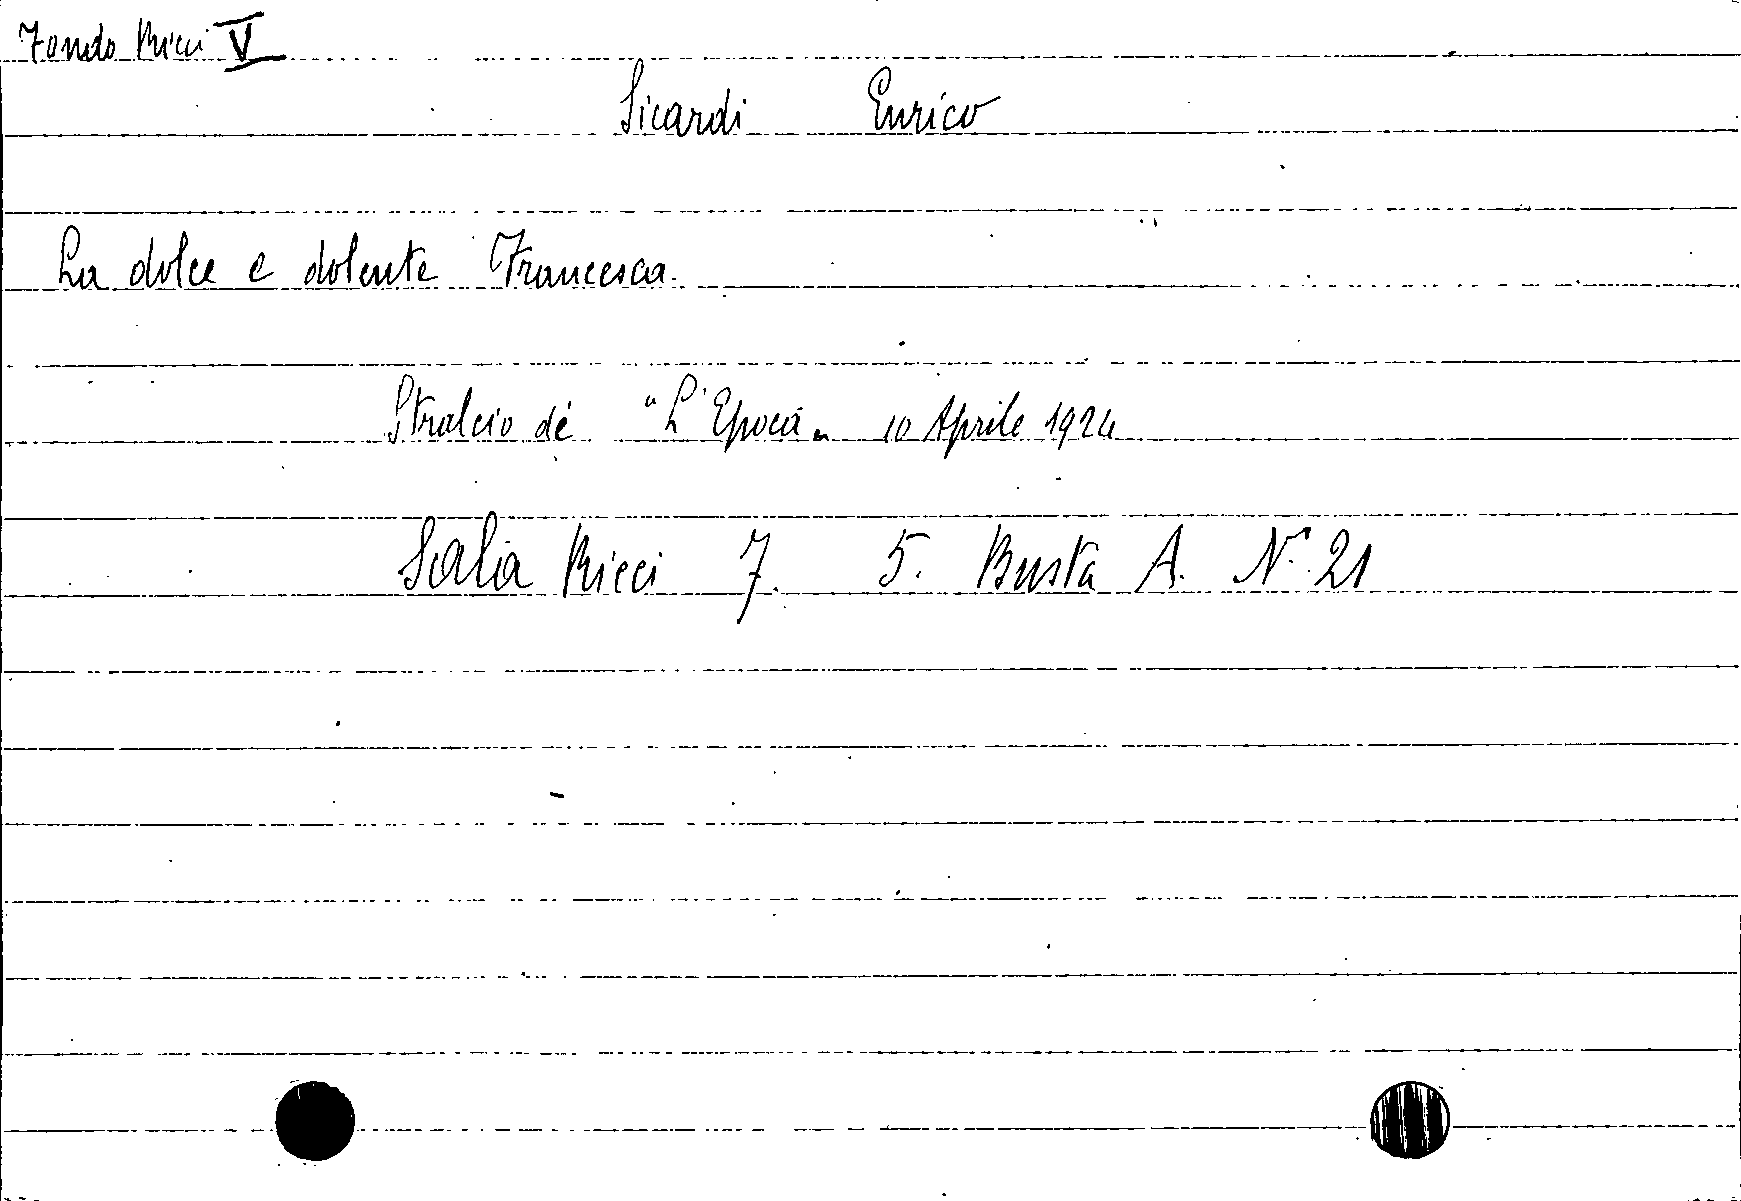 Fondo Ricci V
Sicardi Enrico
La dolce e dolente Francesca.
Stralcio de "L'Epoca" 10 Aprile 1924
Sala Ricci 7. 5. Busta A. N. 21